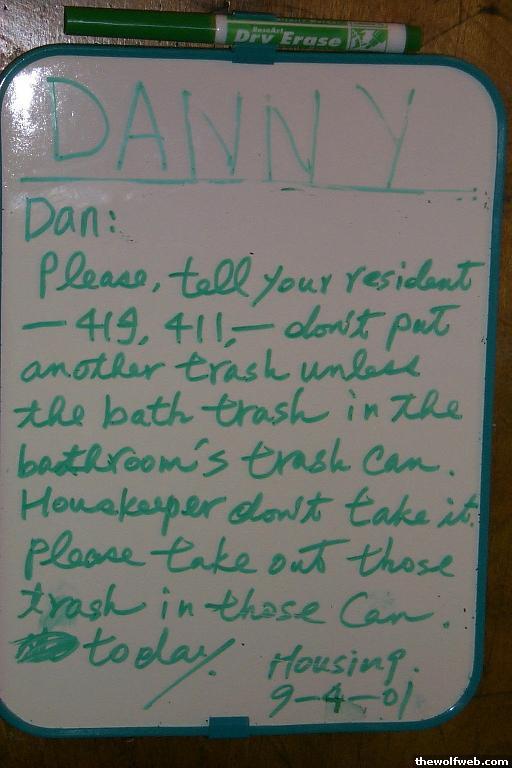 RoseArt
Dry Erase
DANNY
Dan:
Please, tell your resident
— 419, 411, — don't put
another trash unless
the bath trash in the
bathroom's trash can.
Houskeeper don't take it.
Please take out those
trash in those Can.
today.
Housing.
9-4-01
thewolfweb.com